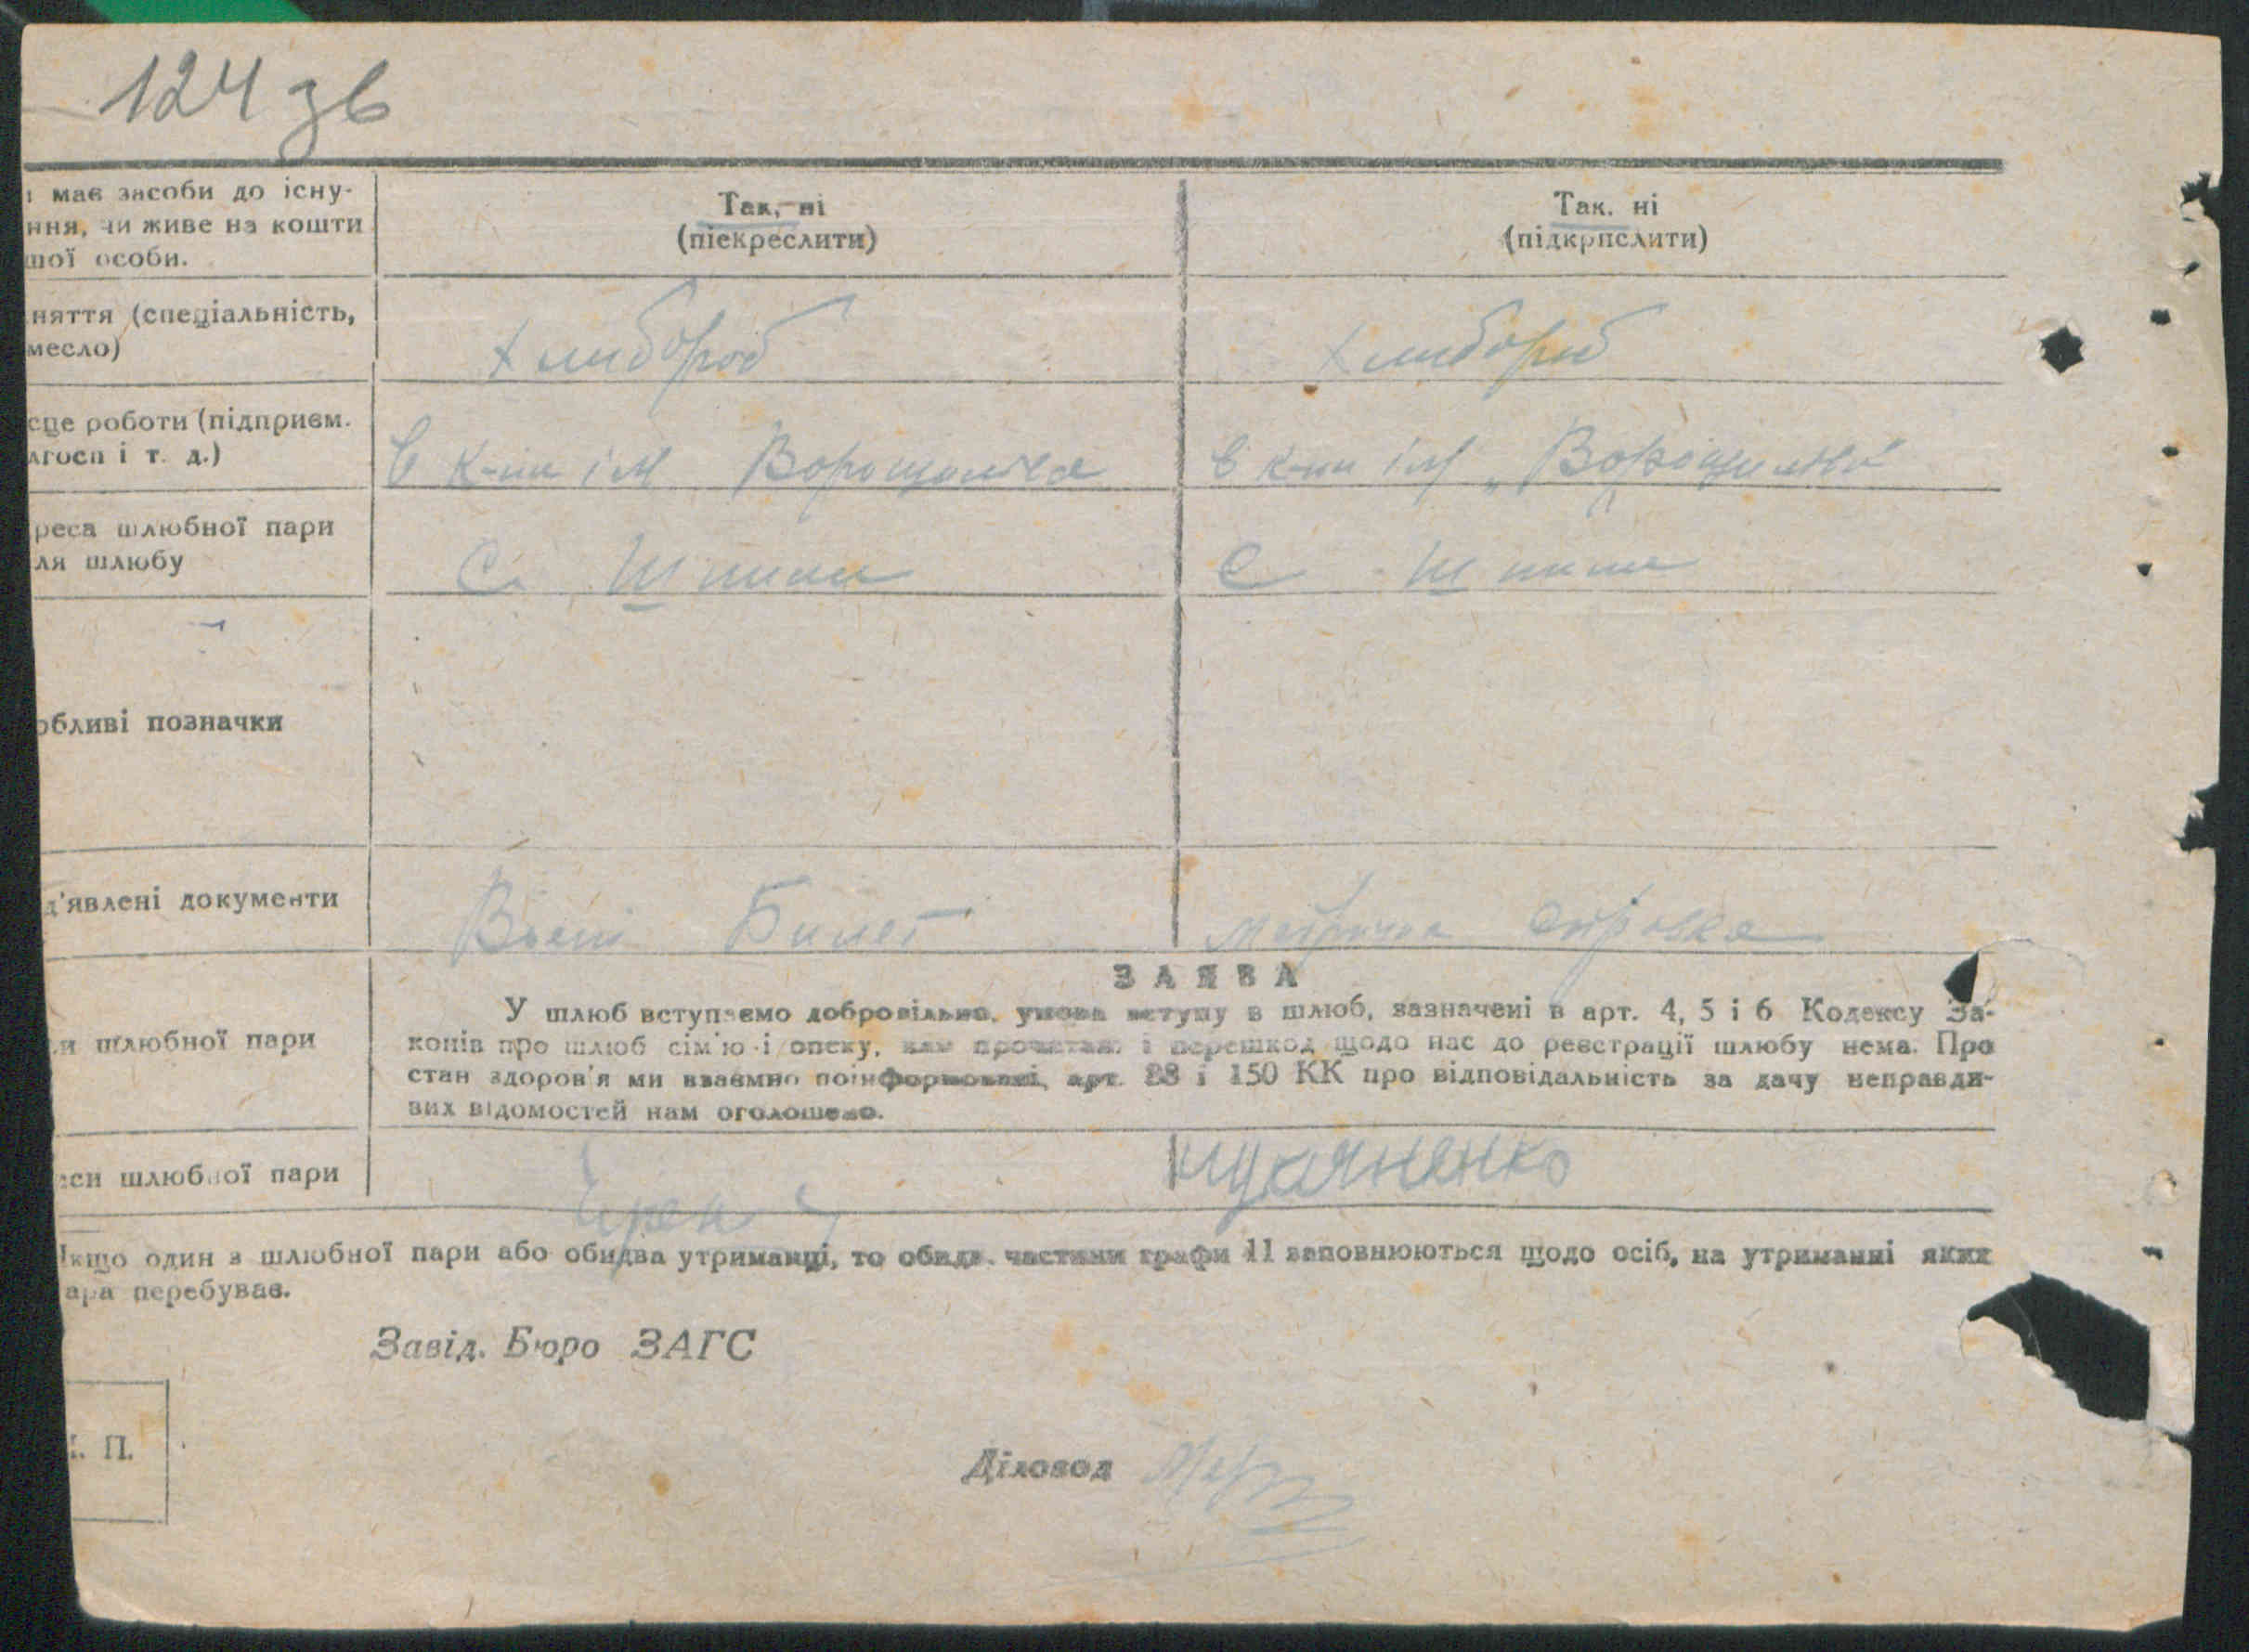 124 зв
має засоби до існу- Так, ні Так. ні
ння, чи живе на кошти (піекреслити) (підкрпслити)
шої особи.
няття (спеціальність, хлибороб хлибороб
месло)
сце роботи (підприєм.
лгосп і т. д.) В к-пи ім Ворошилова В к-пи ім „Ворошилова"
реса шлюбної пари
ля шлюбу С. Шпили С Шпили
обливі позначки
д'явлені документи Воєні Билет Метрична справка
ЗАЯВА
У шлюб вступаємо добровільно, умова вступу в шлюб, зазначені в арт. 4, 5 і 6 Кодексу За-
и шлюбної пари конів про шлюб сім'ю і опеку, нам прочитані і перешкод щодо нас до реєстрації шлюбу нема. Про
стан здоров'я ми взаємно поінформовані, арт. 88 і 150 КК про відповідальність за дачу неправди-
вих відомостей нам оголошено.
си шлюбної пари
Якщо один з шлюбної пари або обидва утриманці, то обидв. частини графи 11 заповнюються щодо осіб, на утриманні яких
ара перебуває.
Завід. Бюро ЗАГС
П.
Діловод